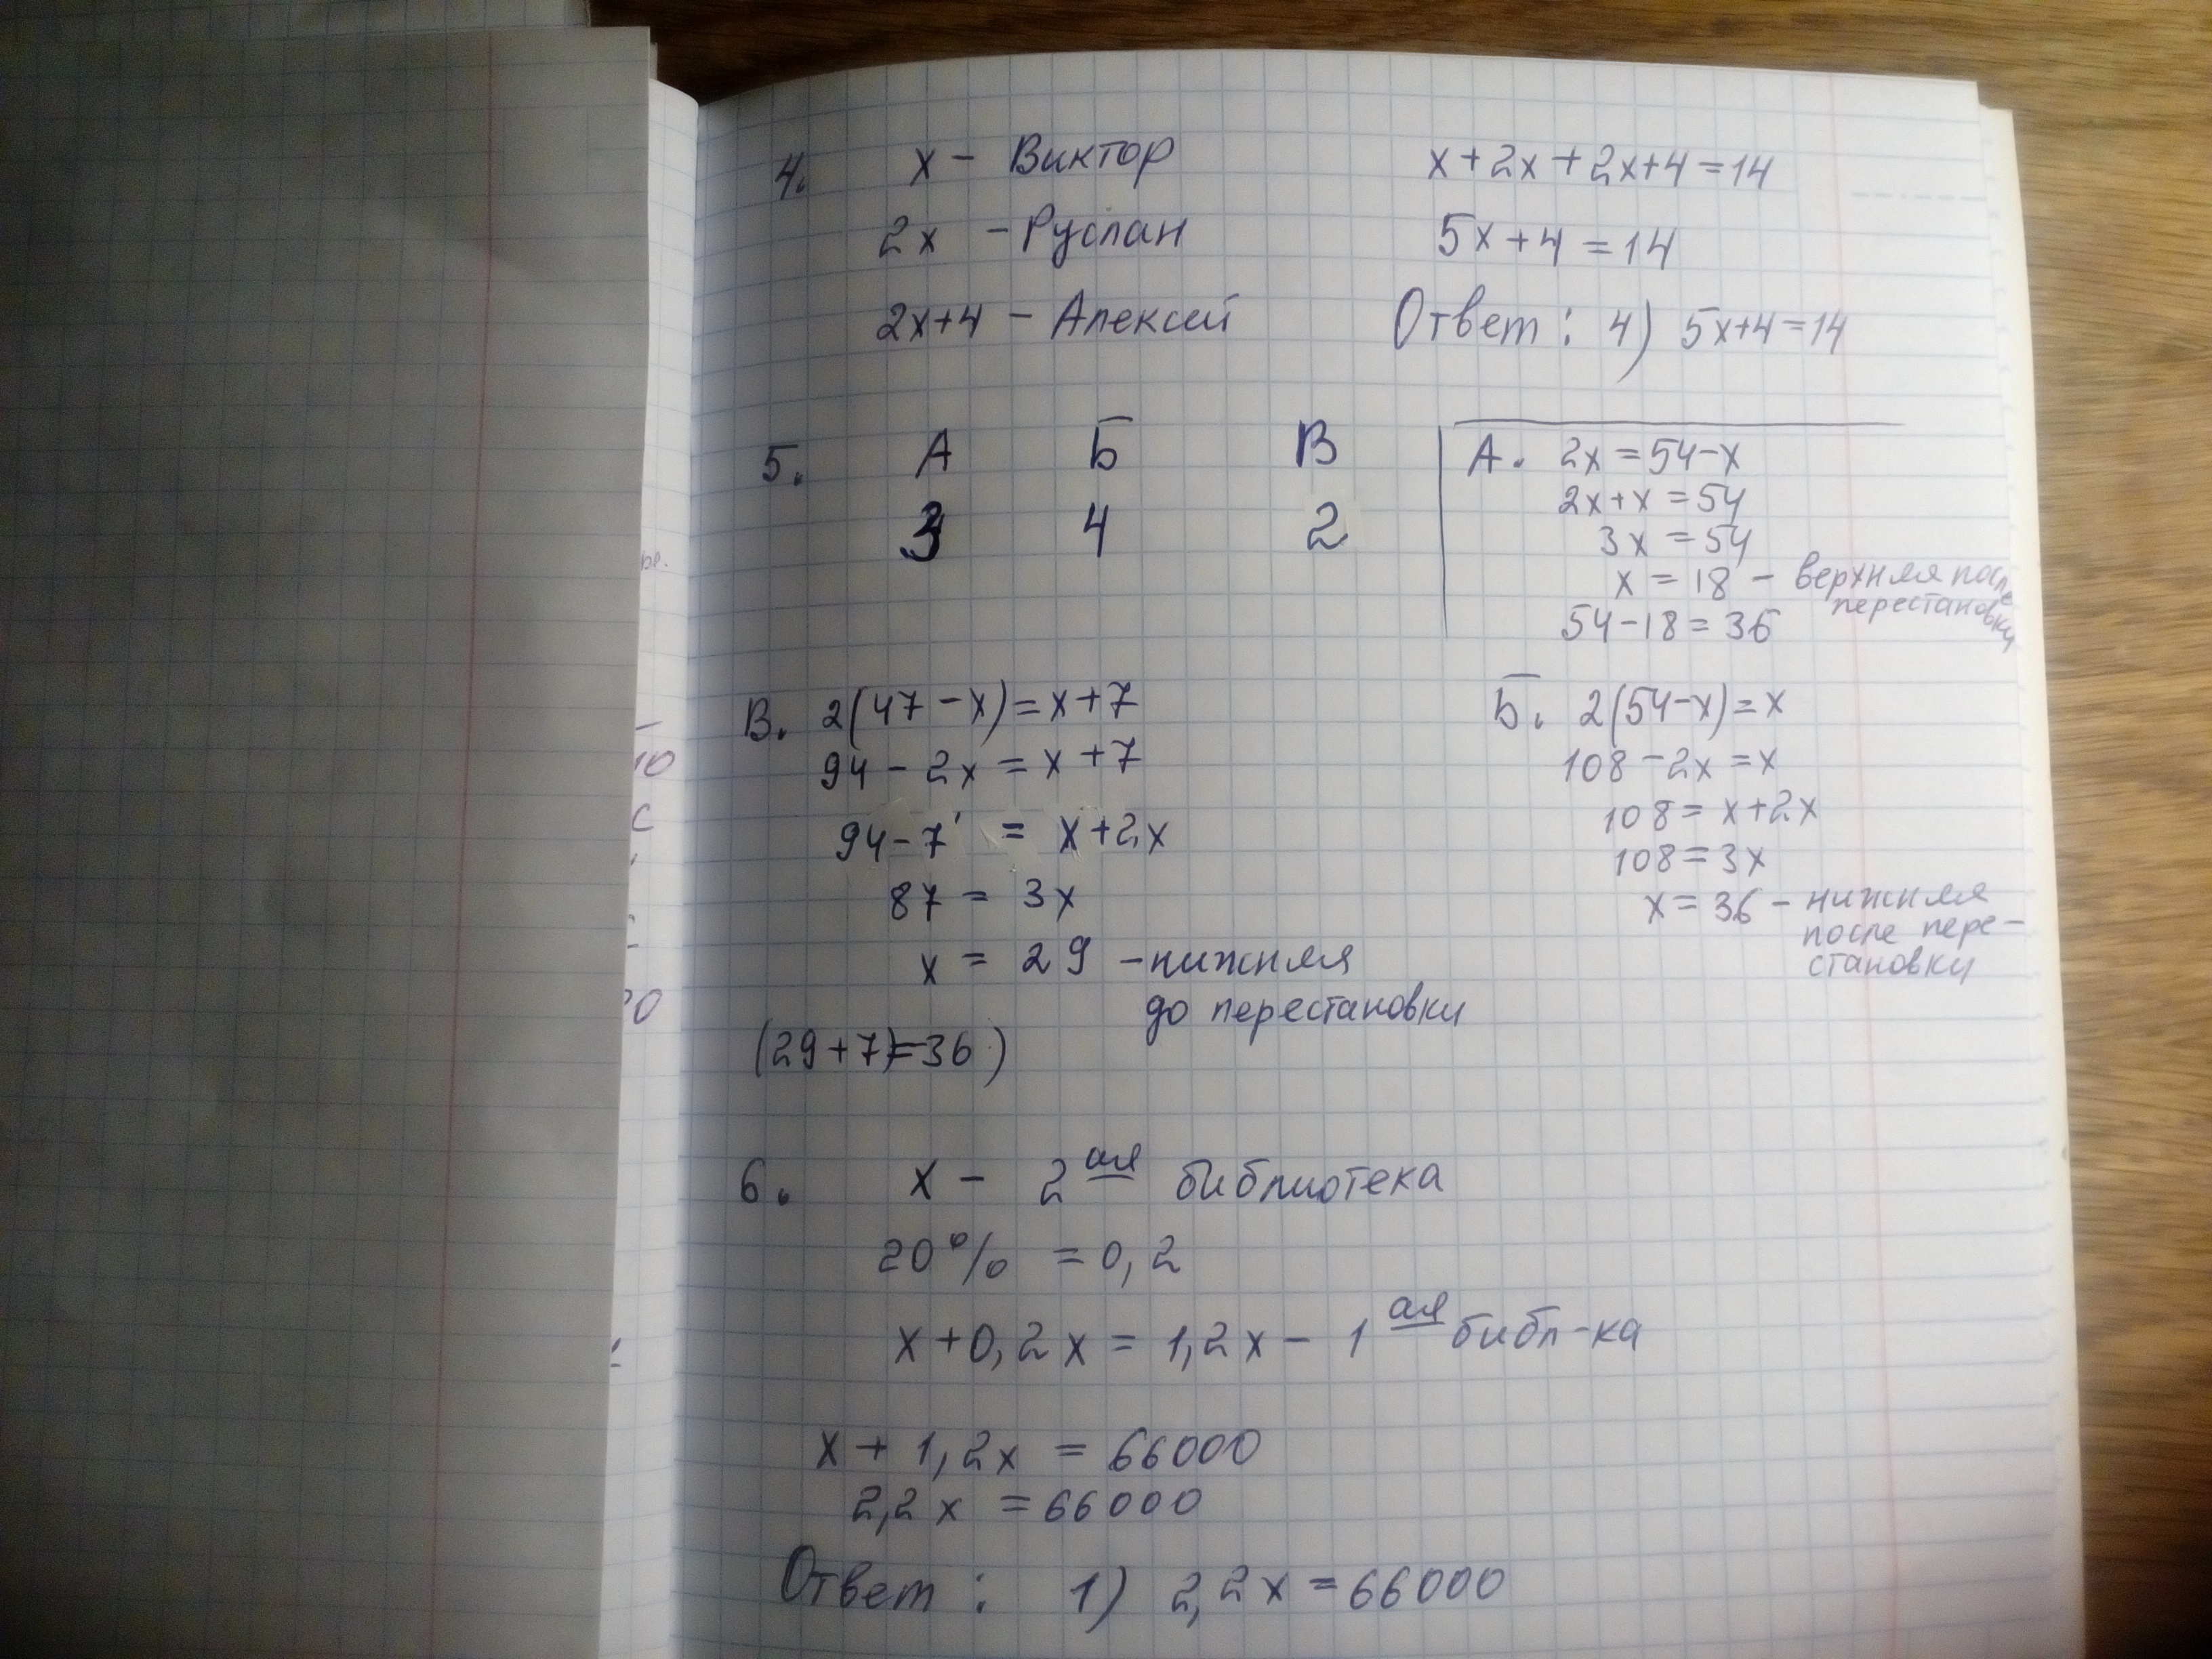 4. x – Виктор
2x – Руслан
2x+4 – Алексей
x+2x+2x+4=14
5x+4=14
Ответ: 4) 5x+4=14
5. А Б В
3 4 2
А. 2x=54-x
2x+x=54
3x=54
x=18 – верхняя после
перестановки
54-18=36
В. 2(47-x)=x+7
94-2x=x+7
94-7=x+2x
87=3x
x=29 – нижняя
до перестановки
(29+7)=36)
Б. 2(54-x)=x
108-2x=x
108=x+2x
108=3x
x=36 – нижняя
после пере-
становки
6. x – 2ая библиотека
20% = 0,2
x+0,2x=1,2x – 1ая библ-ка
x+1,2x=66000
2,2x=66000
Ответ: 1) 2,2x=66000